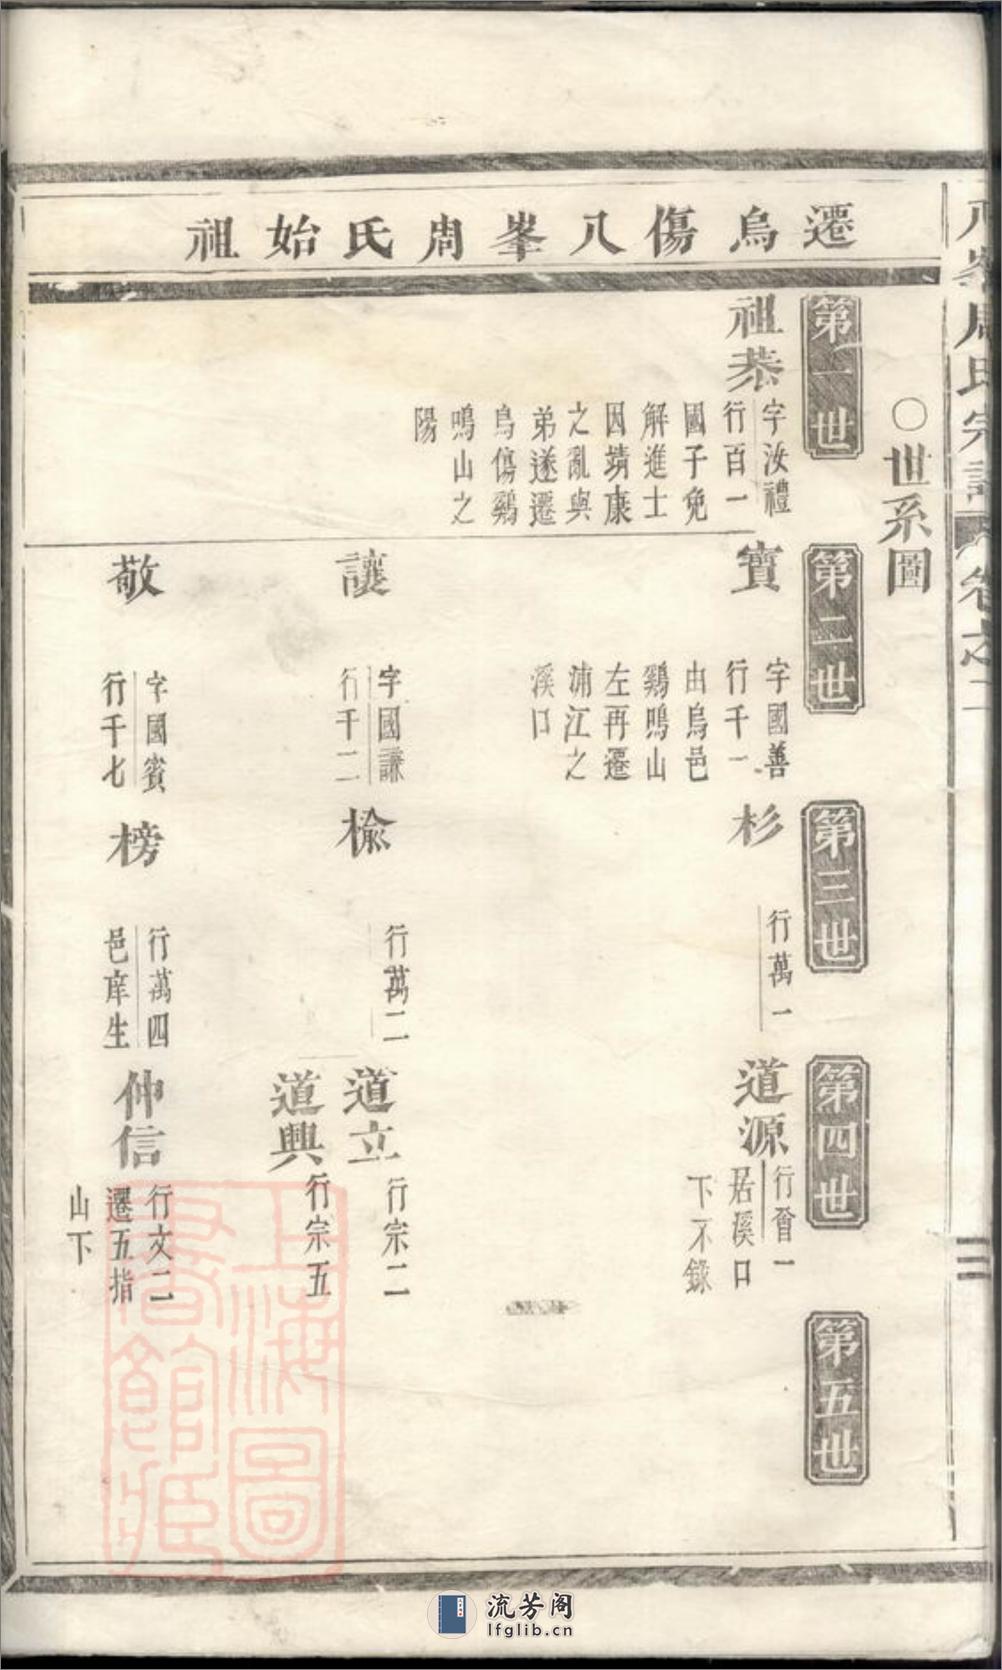 遷烏傷八峯周氏始祖
八峯周氏宗譜 卷之二
〇世系圖
第一世
第二世
第三世
第四世
第五世
祖恭
字汝禮
行百一
國子免
解進士
因靖康
之亂與
弟遂遷
烏傷鷄
鳴山之
陽
寶
字國善
行千一
由烏邑
鷄鳴山
左再遷
浦江之
溪口
杉
行萬一
道源
行曾一
居溪口
下不錄
讓
字國謙
行千二
檢
行萬二
道立
行宗二
道興
行宗五
敬
字國賓
行千七
榜
行萬四
邑庠生
仲信
行文二
遷五指
山下
上海圖
書館藏
流芳阁
lfglib.cn